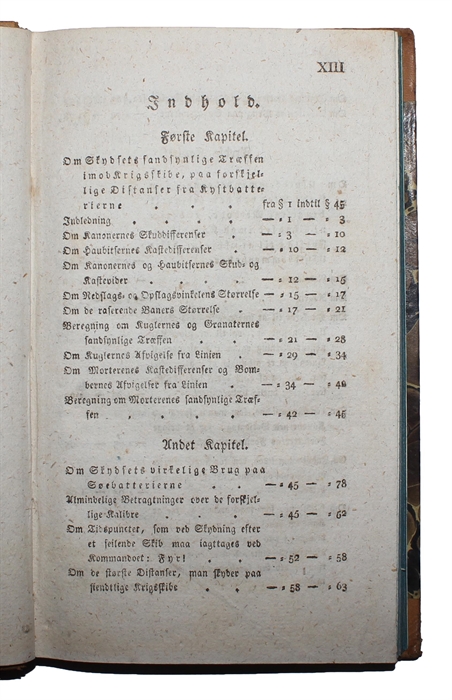 XIII
Indhold.
Første Kapitel.
Om Skydsets sandsynlige Træffen
imod Krigsskibe, paa forskjel-
lige Distanser fra Kystbatte-
rierne . . . . fra § 1 indtil § 45
Indledning . . . . — = 1 — = 3
Om Kanonernes Skuddifferenser . — = 3 — = 10
Om Haubitsernes Kastedifferenser . — = 10 — = 12
Om Kanonernes og Haubitsernes Skud- og
Kastevider . . . — = 12 — = 15
Om Nedslags- og Opslagsvinkelens Størrelse — = 15 — = 17
Om de raserende Baners Størrelse . — = 17 — = 21
Beregning om Kuglernes og Granaternes
sandsynlige Træffen . . — = 21 — = 28
Om Kuglernes Afvigelse fra Linien . — = 29 — = 34
Om Morterenes Kastedifferenser og Bom-
bernes Afvigelser fra Linien . — = 34 — = 40
Beregning om Morterenes sandsynlige Træf-
fen . . . . — = 42 — = 45
Andet Kapitel.
Om Skydsets virkelige Brug paa
Søebatterierne . . — = 45 — = 78
Almindelige Betragtninger over de forskjel-
lige Kalibre . . . — = 45 — = 62
Om Tidspunctet, som ved Skydning efter
et seilende Skib maa iagttages ved
Kommandoet: Fyr! . . — = 52 — = 58
Om de største Distanser, man skyder paa
fiendtlige Krigsskibe . . — = 58 — = 63